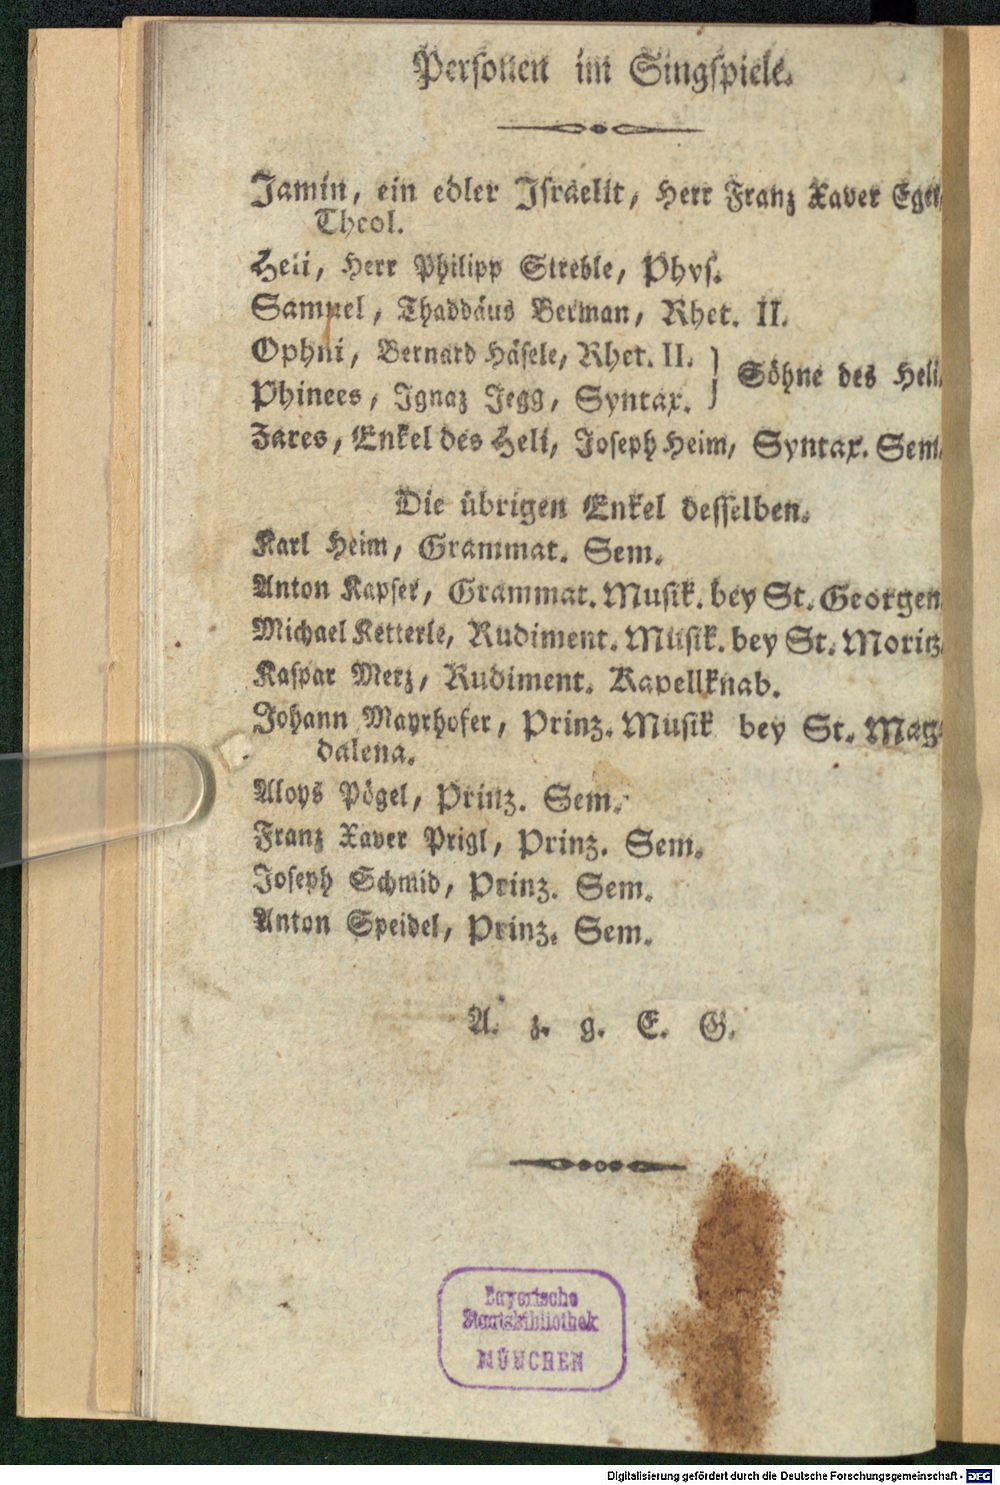 Personen im Singspiele.
Jamin, ein edler Israelit, Herr Franz Xaver
Theol.
Heli, Herr Philipp Streble, Phys.
Samuel, Thaddäus Berman, Rhet. II.
Ophni, Bernard Häsele, Rhet. II.
Phinees, Ignaz Jegg, Syntax.
} Söhne des Heli.
Fares, Enkel des Heli, Joseph Heim, Syntax. Sem.
Die übrigen Enkel desselben.
Karl Heim, Grammat. Sem.
Anton Kapser, Grammat. Musik. bey St. Georgen.
Michael Ketterle, Rudiment. Musik. bey St. Moritz.
Kaspar Merz, Rudiment. Kapellknab.
Johann Mayrhofer, Prinz. Musik bey St. Mag-
dalena.
Aloys Pögel, Prinz. Sem.
Franz Xaver Prigl, Prinz. Sem.
Joseph Schmid, Prinz. Sem.
Anton Speidel, Prinz. Sem.
A. z. g. E. G.
Bayerische
Staatsbibliothek
MÜNCHEN
Digitalisierung gefördert durch die Deutsche Forschungsgemeinschaft - DFG